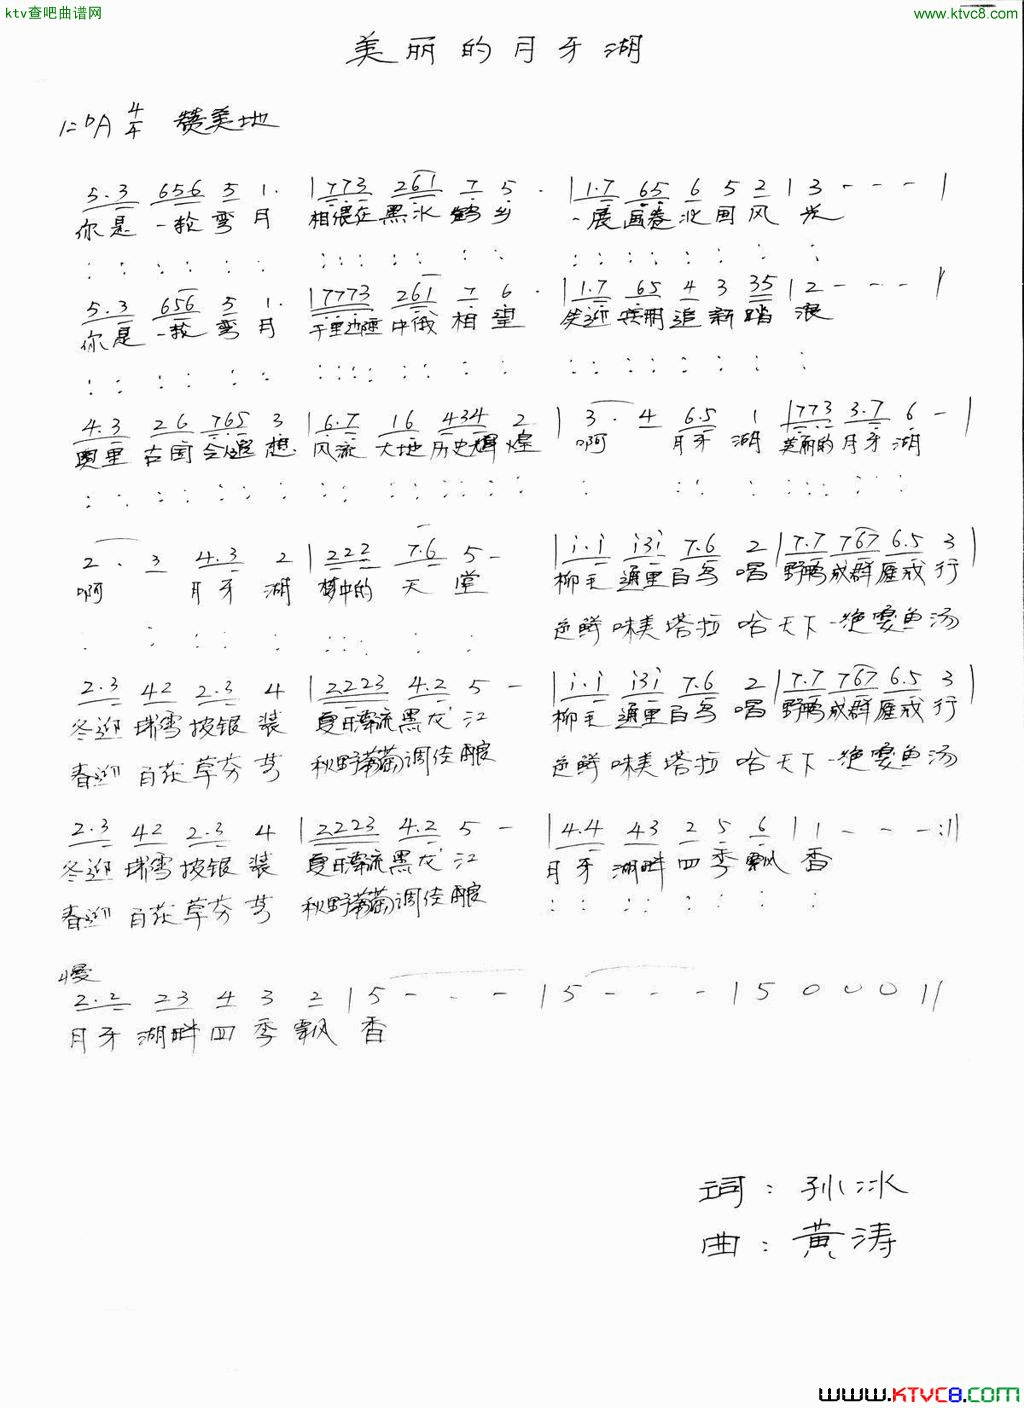 ktv查吧曲谱网
www.ktvc8.com
美丽的月牙湖
1=bA 4/4 赞美地
5.3 656 5 1. | 773 261 7 5. | 1.7 65 6 5 2 | 3 - - - |
你是一轮弯月 相偎在黑水鹤乡 一展画卷北国风光
5.3 656 5 1. | 7773 261 7 6. | 1.7 65 4 3 35 | 2 - - - |
你是一轮弯月 千里边陲中俄相望 笑迎 追新踏浪
4.3 26 765 3 | 6.7 16 434 2 | 3. 4 6.5 1 | 773 3.7 6 - |
奥里古国 遐想 风流大地历史辉煌 啊 月牙湖 美丽的月牙湖
2. 3 4.3 2 | 222 7.6 5 - | i.i i3i 7.6 2 | 7.7 767 6.5 3 |
啊 月牙湖 梦中的天堂 柳毛通里百鸟唱 野鸭成群雁成行
色鲜味美塔拉哈天下一绝 鱼汤
2.3 42 2.3 4 | 2223 4.2 5 - | i.i i3i 7.6 2 | 7.7 767 6.5 3 |
冬迎瑞雪披银装 夏日 流黑龙江 柳毛通里百鸟唱 野鸭成群雁成行
春迎百花草芬芳 秋野葡萄调佳酿 色鲜味美塔拉哈天下一绝 鱼汤
2.3 42 2.3 4 | 2223 4.2 5 - | 4.4 43 2 5 6 | 1 - - - :||
冬迎瑞雪披银装 夏日 流黑龙江 月牙湖畔四季飘香
春迎百花草芬芳 秋野葡萄调佳酿
慢
2.2 23 4 3 2 | 5 - - - | 5 - - - | 5 0 0 0 ||
月牙湖畔四季飘香
词：孙冰
曲：黄涛
www.KTVC8.com